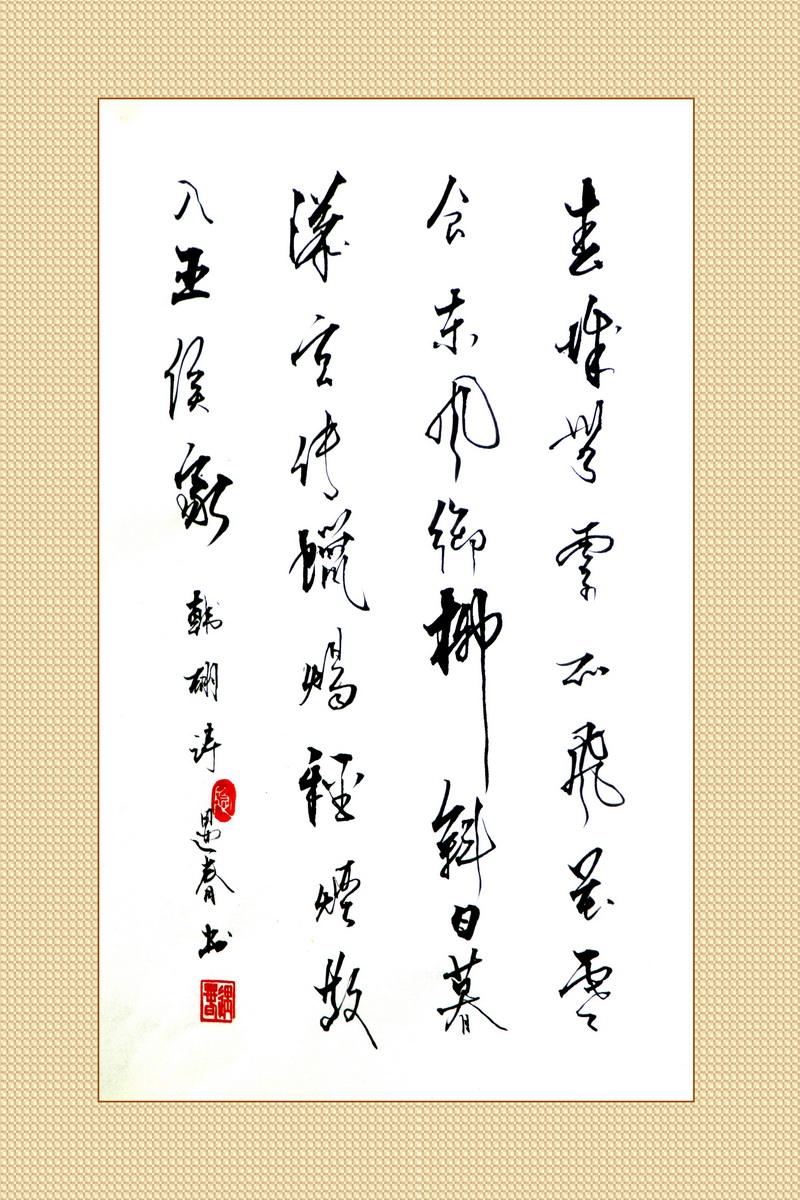 春城無處不飛花寒
食東風御柳斜日暮
漢宮傳蠟燭輕煙散
入五侯家 韓翃詩 遇春書